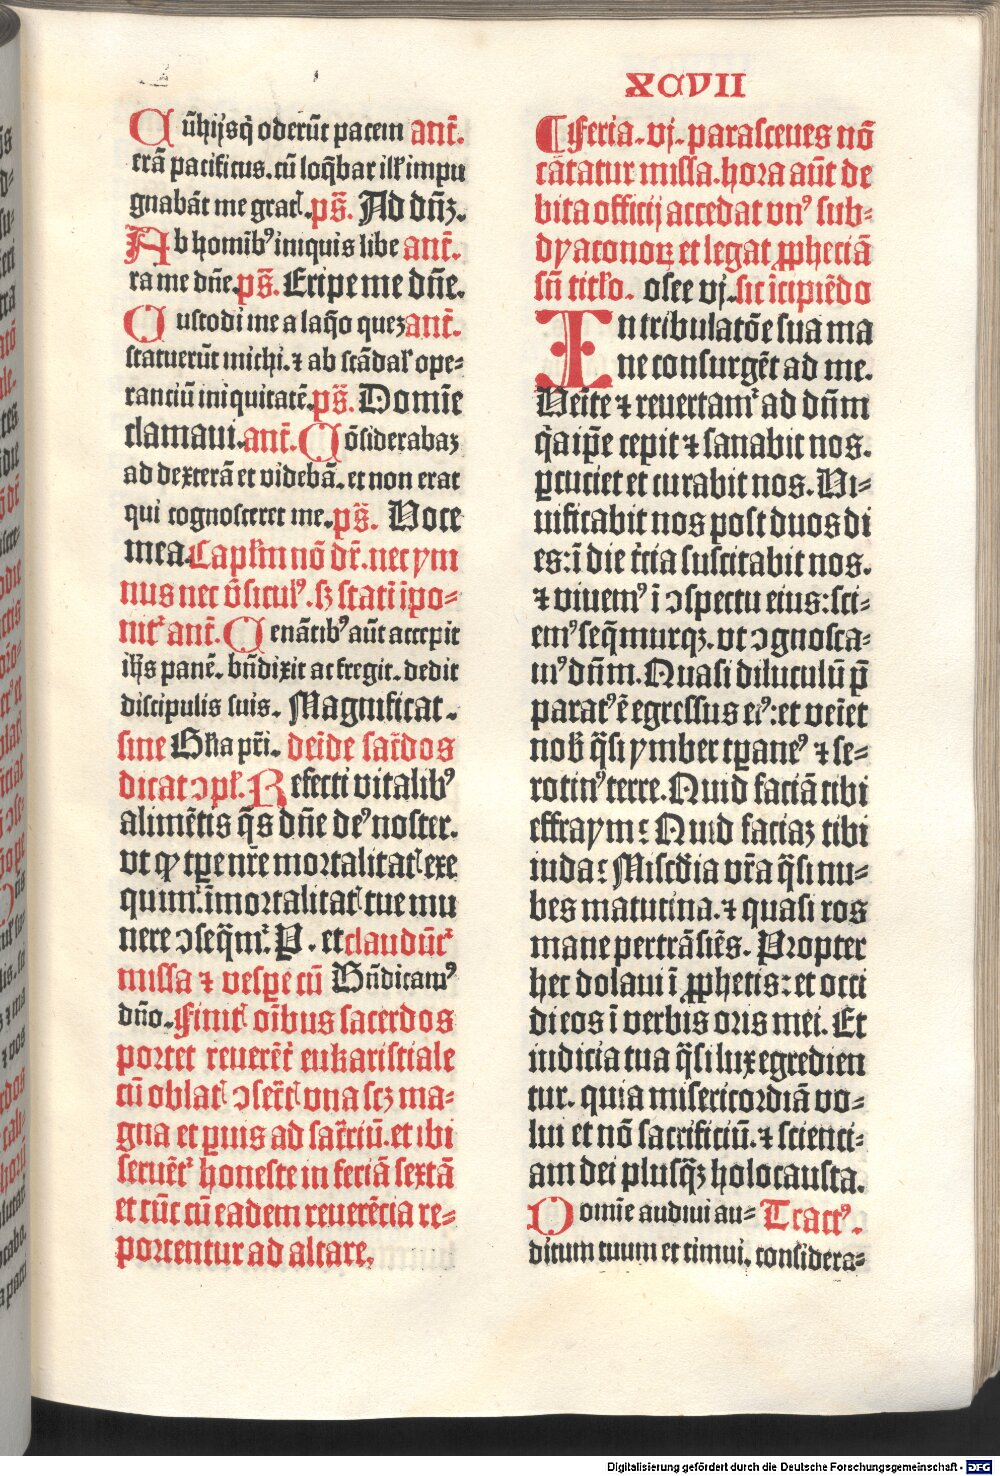 XCVII
Cū hijs q̄ oderūt pacem ant̄.
erā pacificus. cū loq̄bar ill' impu
gnabāt me gratꝭ. ps̄. Ad dn̄ꝫ.
Ab homībꝰ iniquis libe ant̄.
ra me dn̄e. ps̄. Eripe me dn̄e.
Custodi me a laq̄o queꝫ ant̄.
statuerūt michi. ⁊ ab scādal' ope-
rantiū iniquitatē. ps̄. Domīe
clamaui. ant̄. Cōsiderabaꝫ
ad dexterā et videbā. et non erat
qui cognosceret me. ps̄. Voce
mea. Capl'm nō dr̄. nec ym
nus nec v̄siculꝰ. sꝫ statī īpo-
nit᷑ ant̄. Cenātibꝰ aūt accepit
ih̄s panē. bn̄dixit ac fregit. dedit
discipulis suis. Magnificat.
sine Gl'ia pr̄i. deīde sac̄dos
dicat ꝯpl'. Refecti vitalibꝰ
alimētis q̄s dn̄e deꝰ noster.
vt qđ tꝑe nr̄e mortalitatꝭ exe
quimur᷑. īmortalitatꝭ tue mu
nere ꝯseq̄mur᷑. P. et claudūt᷑
missa ⁊ vespe cū Bn̄dicamꝰ
dn̄o. Finitꝭ oībus sacerdos
portet reuerēt᷑ eukaristiale
cū oblatꝭ ꝯsecr̄tꝭ vna scꝫ ma-
gna et ꝑuis ad sacr̄iū. et ibi
seruēt᷑ honeste in feriā sextā
et tūc cū eadem reuerētia re-
portentur ad altare.
¶ Feria. vj. parasceues nō
cātatur missa. hora aūt de
bita officij accedat vnꝰ sub-
dyaconoꝝ et legat ꝓpheciā
sn̄ titl'o. osee vj. sic īcipiēdo
In tribulatōe sua ma
ne consurgēt ad me.
Veīte ⁊ reuertamur᷑ ad dn̄m
q̄a ip̄e cepit ⁊ sanabit nos.
ꝑcuciet et curabit nos. Vi-
uificabit nos post duos di
es: ī die t̄cia suscitabit nos.
⁊ viuemꝰ ī ꝯspectu eius: sci-
emꝰ seq̄murqꝫ. vt ꝯgnosca-
mꝰ dn̄m. Quasi diluculū p̄
paratꝰ ē egressus eiꝰ: et veīet
nob̄ q̄si ymber tꝑaneꝰ ⁊ se-
rotinꝰ terre. Quid faciā tibi
effraym: Quid faciaꝫ tibi
iuda: Misc̄dia vr̄a q̄si nu-
bes matutina. ⁊ quasi ros
mane pertrāsiēs. Propter
hec dolaui ī ꝓphetis: et occi
di eos ī verbis oris mei. Et
iudicia tua q̄si lux egredien
tur. quia misericordiā vo-
lui et nō sacrificiū. ⁊ scienci-
am dei plusq̄ꝫ holocausta.
Domīe audiui au- Tractꝰ.
ditum tuum et timui. considera-
Digitalisierung gefördert durch die Deutsche Forschungsgemeinschaft - DFG